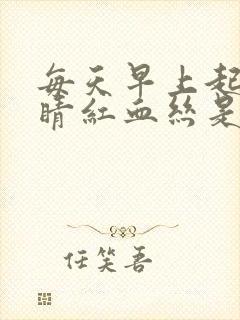 每天早上起
睛红血丝是
任笑吾